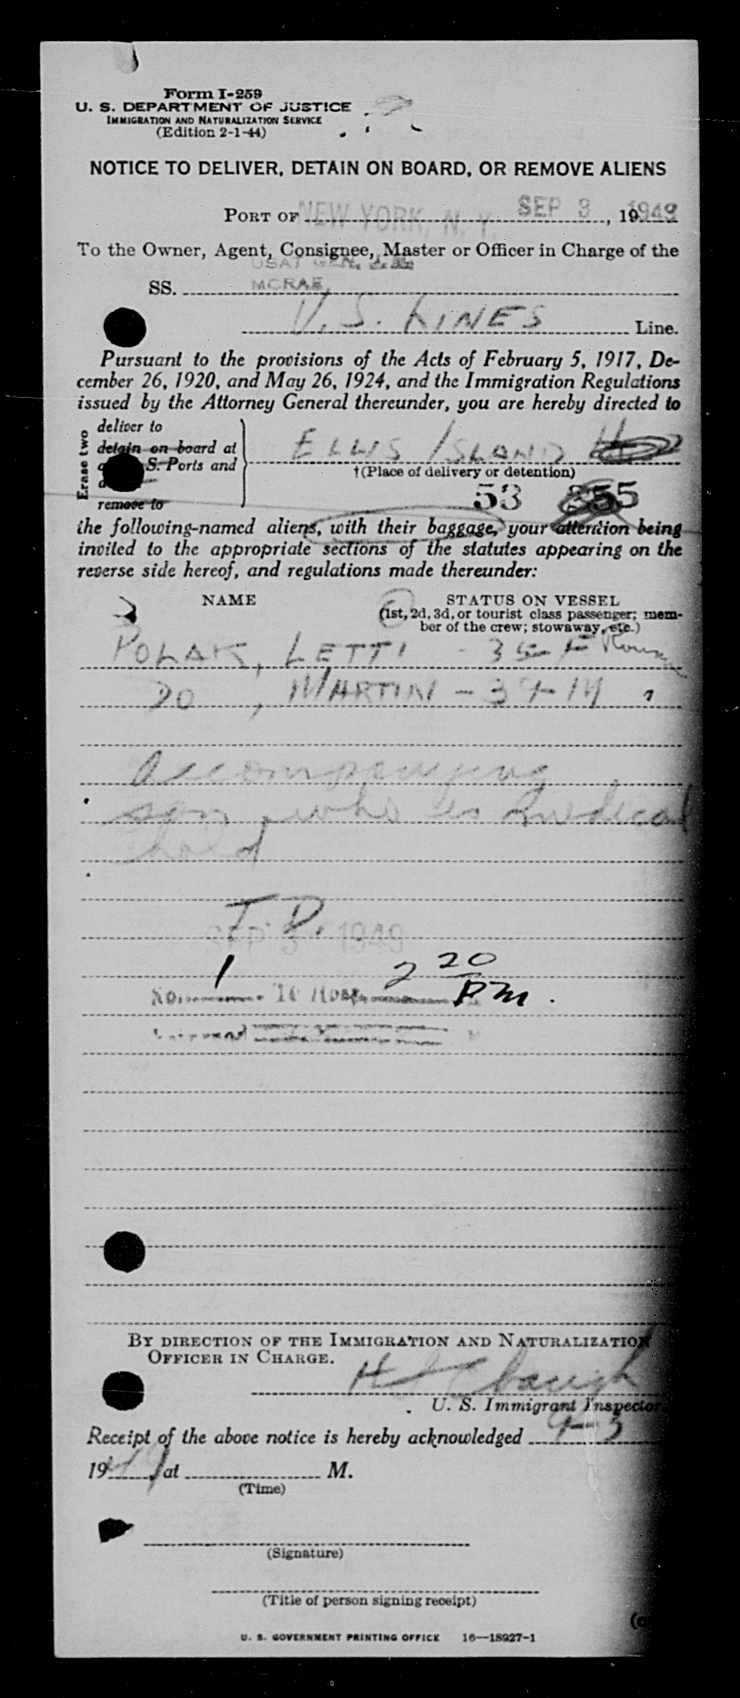 Form I-259
U. S. DEPARTMENT OF JUSTICE
IMMIGRATION AND NATURALIZATION SERVICE
(Edition 2-1-44)
NOTICE TO DELIVER, DETAIN ON BOARD, OR REMOVE ALIENS
PORT OF NEW YORK, N. Y. SEP 3, 1949
To the Owner, Agent, Consignee, Master or Officer in Charge of the
USAT GEN.
SS. MCRAE,
U.S. LINES Line.
Pursuant to the provisions of the Acts of February 5, 1917, De-
cember 26, 1920, and May 26, 1924, and the Immigration Regulations
issued by the Attorney General thereunder, you are hereby directed to
Erase two
deliver to
detain on board at
S. Ports and
remove to
ELLIS ISLAND
†(Place of delivery or detention)
53 355
the following-named aliens, with their baggage, your attention being
invited to the appropriate sections of the statutes appearing on the
reverse side hereof, and regulations made thereunder:
NAME STATUS ON VESSEL
(1st, 2d, 3d, or tourist class passenger; mem-
ber of the crew; stowaway, etc.)
POLAK, LETTI - 35-F
DO, MARTIN - 39-M "
Accompanying
son, who is medical
hold
T. D.
SEP 3 1949
No. 1 To Hosp. 2 20 PM.
BY DIRECTION OF THE IMMIGRATION AND NATURALIZATION
OFFICER IN CHARGE.
U. S. Immigrant Inspector.
Receipt of the above notice is hereby acknowledged 9-3
1949, at M.
(Time)
(Signature)
(Title of person signing receipt)
U. S. GOVERNMENT PRINTING OFFICE 16—18927-1